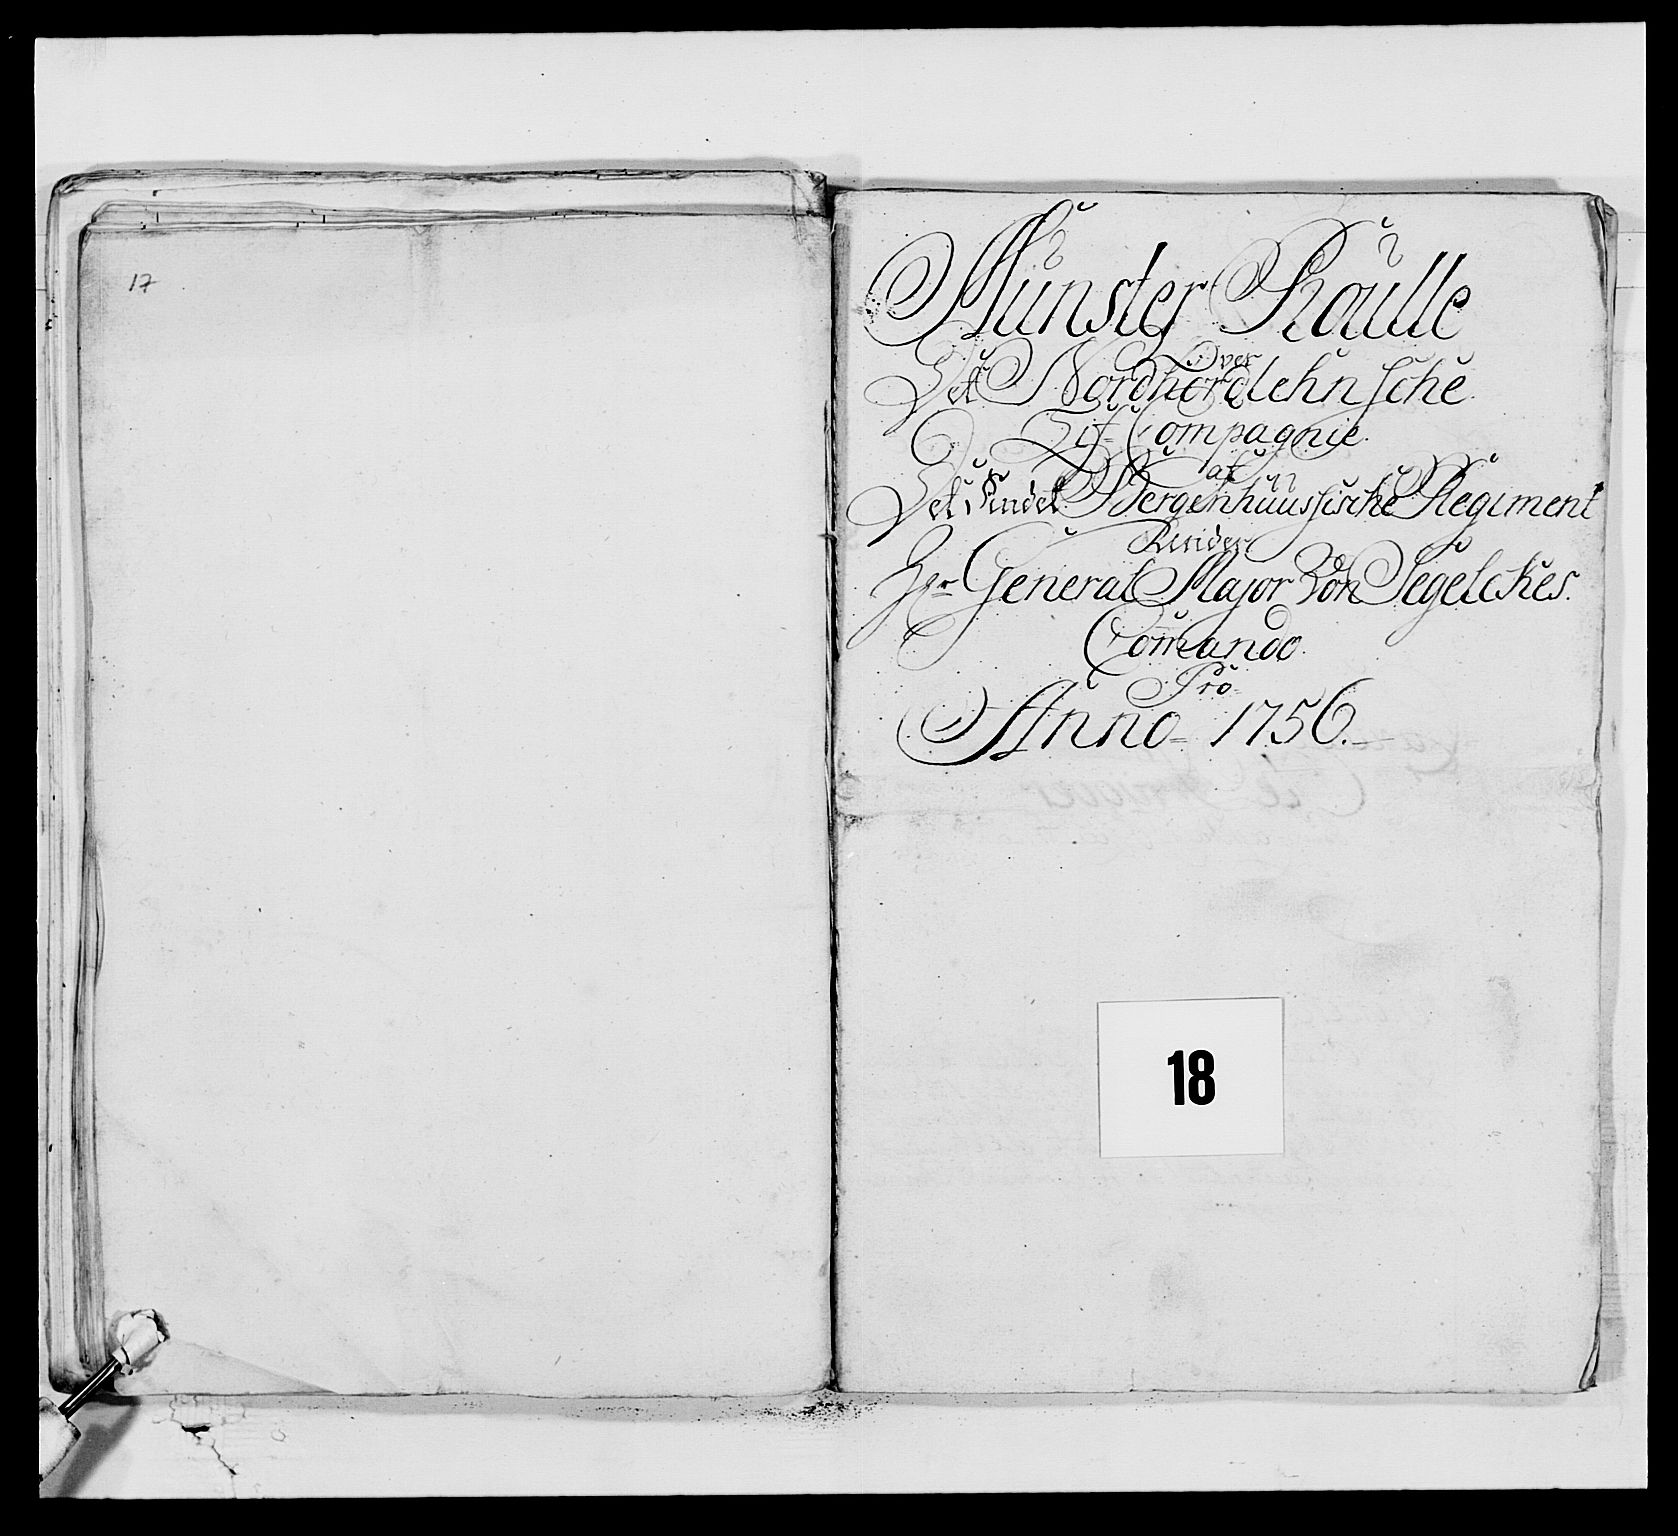 17
Münster Roulle
Over
Det Nordhordlehnsche
Lif Compagnie.
af
Det Andet Bergenhuussische Regiment
Under
Hr General Major Von Segelckes.
Com̄ando
Pro
Anno 1756.
18